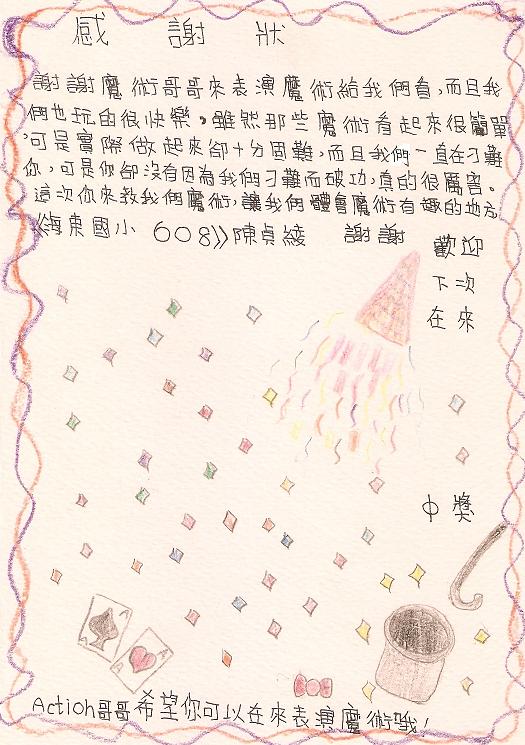 感謝狀
謝謝魔術哥哥來表演魔術給我們看,而且我
們也玩的很快樂。雖然那些魔術看起來很簡單
,可是實際做起來卻十分困難,而且我們一直在刁難
你,可是你都沒有因為我們刁難而破功,真的很厲害。
這次你來教我們魔術,讓我們體會魔術有趣的地方
《海東國小 608》陳貞綾 謝謝
歡迎
下次
在來
中獎
A
A
Action哥哥希望你可以在來表演魔術哦!